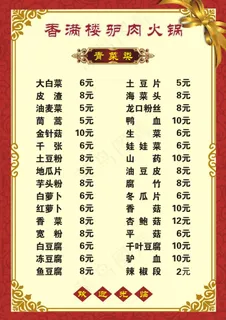 香满楼驴肉火锅
青菜类
大白菜 6元 土豆片 5元
皮渣 8元 海带片 5元
油麦菜 5元 龙口粉丝 8元
茼蒿 5元 鸭血 10元
金针菇 10元 生菜 6元
千张 6元 娃娃菜 6元
土豆粉 8元 山药 10元
地瓜片 5元 油豆皮 8元
芋头粉 8元 腐竹 8元
白萝卜 6元 冬瓜片 6元
红萝卜 6元 香菇 10元
香菜 8元 杏鲍菇 12元
宽粉 8元 平菇 6元
白豆腐 6元 千叶豆腐 10元
冻豆腐 6元 驴血 10元
鱼豆腐 8元 辣椒段 2元
欢迎光临